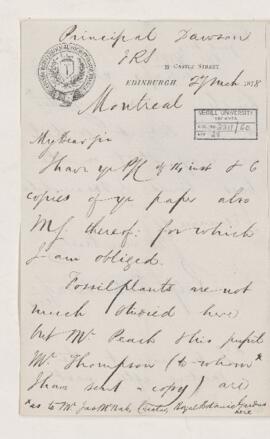 Principal Dawson
FRS
CASTLE STREET,
EDINBURGH 27 Mch 1878
Montreal
McGILL UNIVERSITY
ARCHIVES
ACC. NO. 2211/60
REF.
My Dear Sir
I have yr of 14 inst & 6
copies of yr paper also
Mf thereof: for which
I am obliged.
Fossil plants are not
much studied here
but Mr Peach & his pupil
Mr Thompson (to whom*
I have sent a copy) are
* as to Mr Jas McNab, Curator, Royal Botanic Gardens
here